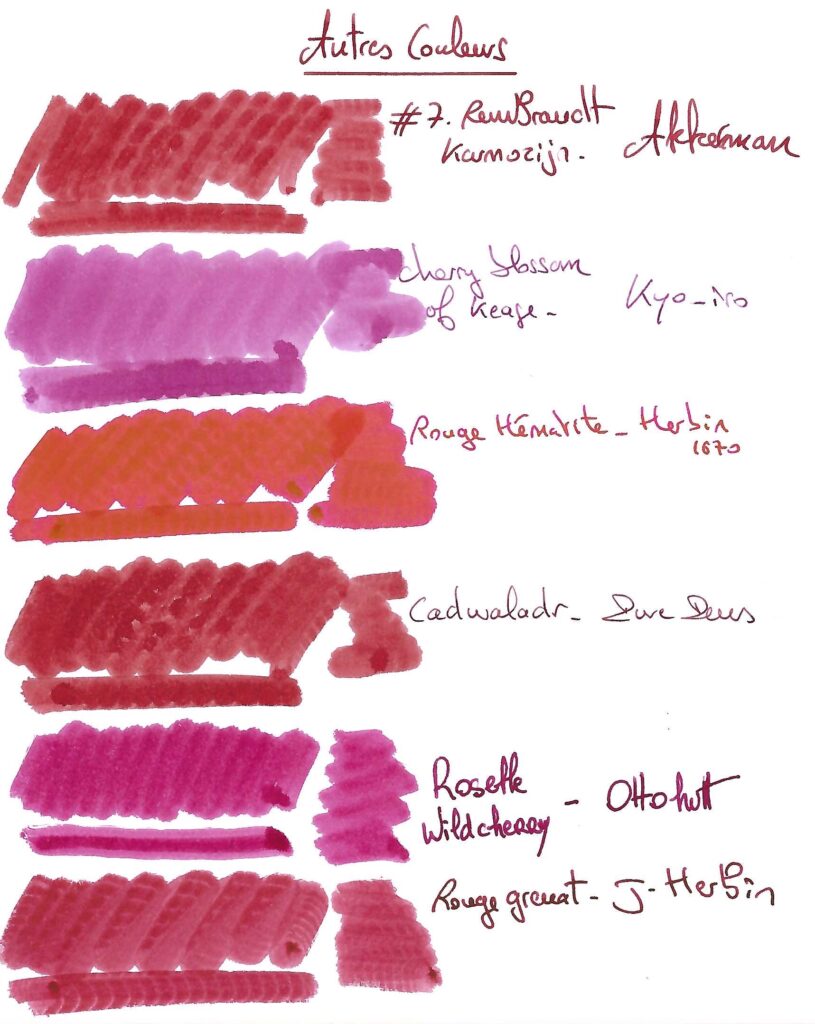 Autres Couleurs
#7. RemBrandt Akkerman
Karmozijn.
cherry blossom Kyo-iro
of Keage -
Rouge Hématite - Herbin
1670
Cadwaladr - Pure Pens
Rosette
Wildcherry - Otto hutt
Rouge grenat - J-Herbin